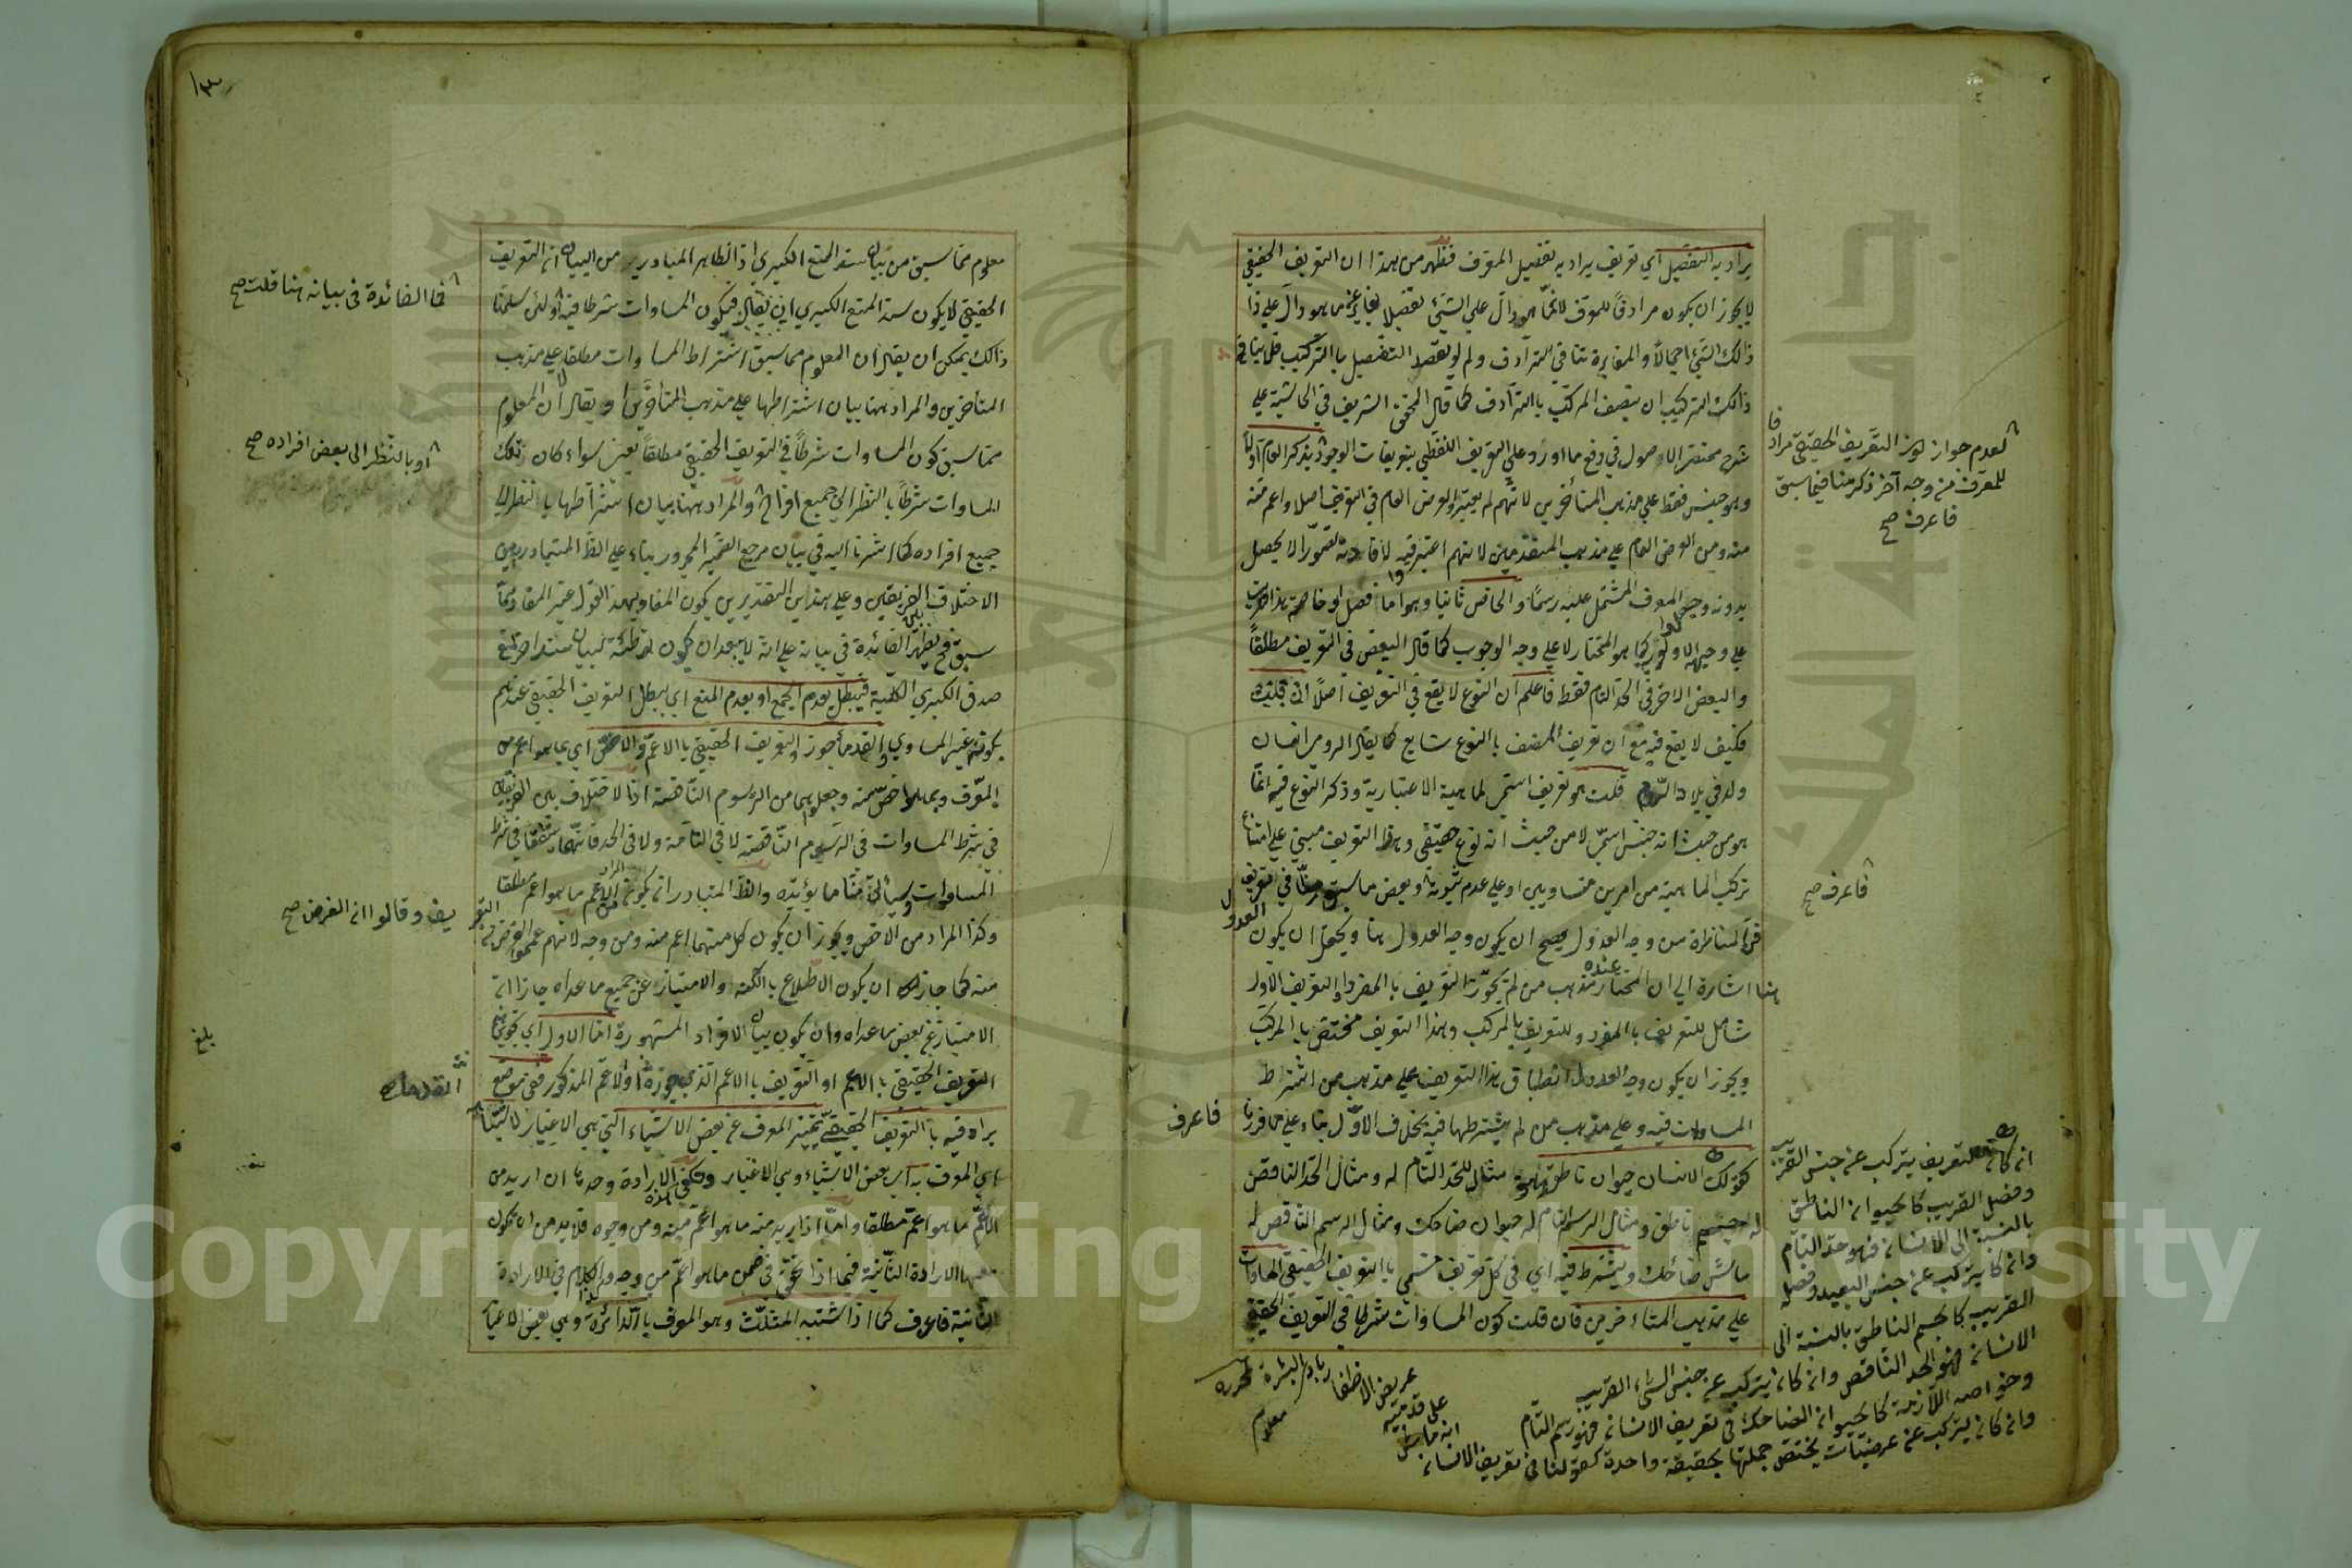 يراد به التفصيل اي تعريف يراد به تفصيل المعرف فظهر من هذا ان التعريف الحقيقي
لا يجوز ان يكون مرادفا للمعرف لانما هو دال على الشئ تفصيلا يغاير عما هو دال على ذا
ذالك الشئ اجمالا والمغايرة تنافي الترادف ولم لو يقصد التفصيل بالتركيب فلا ينافي
ذالك التركيب ان يتصف المركب بالترادف كما قال المحقق الشريف في الحاشية على
شرح مختصر الاصول في دفع ما اورد على التعريف اللفظي بتعريفات الوجود يذكر العام اولا
وهو جنس فقط على مذهب المتأخرين لانهم لم يعتبروا العرض العام في التعريف اصلا واعم منه
منه ومن العرض العام على مذهب المتقدمين لانهم اعتبر فيه لافادته تصورا لا يحصل
بدونه وجعلوا المعرف المشتمل عليه رسما والخاص ثانيا وهو اما فصل او خاصة
على وجه الاولى كما هو المختار لا على وجه الوجوب كما قال البعض في التعريف مطلقا
والبعض الاخر في الحد التام فقط فاعلم ان النوع لا يقع في التعريف اصلا ان قلت
فكيف لا يقع فيه مع ان تعريف الصنف بالنوع شايع كما يقال الرومي انسان
ولد في بلاد الروم قلت هو تعريف اسمي لماهية الاعتبارية وذكر النوع فيه انما
هو من حيث انه جنس اسمي لا من حيث انه نوع حقيقي وهذا التعريف مبني على امتناع
تركب الماهية من امرين متساويين او على عدم ثبوته وبعض ما سبق منا في تعريف
فن المناظرة من وجه العدول يصح ان يكون وجه العدول هنا ويحتمل ان يكون العدول
هنا اشارة الى ان المختار عنده مذهب من لم يجوز التعريف بالمفرد والتعريف الاول
شامل للتعريف بالمفرد وللتعريف بالمركب وهذا التعريف مختص بالمركب
ويجوز ان يكون وجه العدول انطباق هذا التعريف على مذهب من اشترط
المساوات فيه وعلى مذهب من لم يشترطها فيه بخلاف الاول بناء على ما قررنا
كقولك الانسان حيوان ناطق مثال للحد التام له ومثال الحد الناقص
له جسم ناطق ومثال الرسم التام له حيوان ضاحك ومثال الرسم الناقص له
ماش ضاحك ويشترط فيه اي في كل تعريف مسمى بالتعريف الحقيقي المساوات
على مذهب المتاءخرين فان قلت كون المساوات شرطا في التعريف الحقيقي
لعدم جواز كون التعريف الحقيقي مرادفا
للمعرف من وجه آخر ذكر منا فيما سبق
فاعرف صح
فاعرف صح
فاعرف
ان كان التعريف يتركب عن جنس القريب
وفصل القريب كالحيوان الناطق
بالنسبة الى الانسان فهو حد التام
وان كان يتركب عن جنس البعيد وفصله
القريب كالجسم الناطق بالنسبة الى
الانسان فهو الحد الناقص وان كان يتركب عن جنس الشئ القريب
وخواصه اللازمة كالحيوان الضاحك في تعريف الانسان فهو رسم التام
وان كان يتركب عن عرضيات يختص جملتها بحقيقة واحدة كقولنا في تعريف الانسان
انه ماش
على قدميه
عريض الاظفار باد البشرة
١٣
معلوم مما سبق من بيان سند المنع الكبرى اذ الظاهر المتبادر من البيان ان التعريف
الحقيقي لا يكون سند المنع الكبرى ان يقال فيكون المساوات شرطا فيه ولئن سلمنا
ذالك يمكن ان يقال ان المعلوم مما سبق اشتراط المساوات مطلقا على مذهب
المتأخرين والمراد ههنا بيان اشتراطها على مذهب المتأخرين او يقال ان المعلوم
مما سبق كون المساوات شرطا في التعريف الحقيقي مطلقا يعني سواء كان تلك
المساوات شرطا بالنظر الى جميع افراده والمراد ههنا بيان اشتراطها بالنظر الى
جميع افراده كما اشرنا اليه في بيان مرجع الضمير المجرور بناء على الظ المتبادر من
الاختلاف الفريقين وعلى هذين التقديرين يكون المفاد بهذا القول غير المفاد مما
سبق فح يظهر الفائدة في بيانه على انه لا يبعد ان يكون توطئة لبيان سند اخر لمنع
صدق الكبرى الكلية فيبطل بعدم الجمع او بعدم المنع اي يبطل التعريف الحقيقي عندهم
بكونه غير المساوي والقدماء جوزوا التعريف الحقيقي بالاعم والاخص اي بما هو اعم من
المعرف وبما هو اخص منه وجعلوهما من الرسوم الناقصة اذ الاختلاف بين الفريقين
في شرط المساوات في الرسوم الناقصة لا في التامة ولا في الحد فانهما متفقا في شرط
المساوات وسيأتي منا ما يؤيده والظ المتبادر ان يكون المراد من الاعم ما هو اعم مطلقا
وكذا المراد من الاخص ويجوز ان يكون كل منهما اعم منه ومن وجه لانهم عمموا الغرض
منه كما جاز ان يكون الاطلاع بالكنه والامتياز عن جميع ما عداه جاز انه
الامتياز عن بعض ما عداه وان يكون بيان الافراد المشهورة اما الاول اي تجويزهم
التعريف الحقيقي بالاعم او التعريف بالاعم الذي جوزه اولا عم المذكور ففي موضع
يراد فيه بالتعريف الحقيقي تمييز المعرف عن بعض الاشياء التي هي الاغيار
اي المعرف به اي بعض الاشياء وهي الاغيار وتكفي هذه الارادة وحدها ان اريد من
الاعم ما هو اعم مطلقا واما اذا اريد منه ما هو اعم منه ومن وجه فلا بد من ان يكون
معها الارادة الثانية فيما اذا تحقق في ضمن ما هو اعم من وجه والكلام في الارادة
الثانية فاعرف كما اذا اشتبه المثلث وهو المعرف بالدائرة وهي بعض الاغيار
فما الفائدة في بيانه هنا قلت صح
او بالنظر الى بعض افراده صح
التعريف وقالوا ان الغرض صح
القدماء
بلغ
Copyright © King Saud University